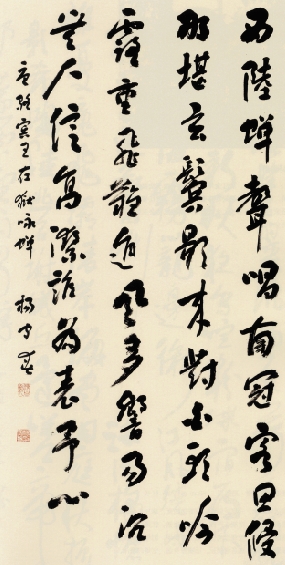 西陸蝉聲唱南冠客思侵
那堪玄鬢影来對白頭吟
露重飛難進風多響易沉
無人信高潔誰為表予心
唐駱賓王在獄咏蝉 楊守